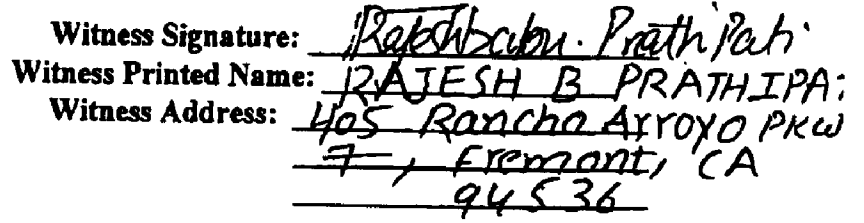 Witness Signature: Rajeshbabu. Prathipati
Witness Printed Name: RAJESH B PRATHIPA:
Witness Address: 405 Rancho Arroyo PKW
7, Fremont, CA
94536